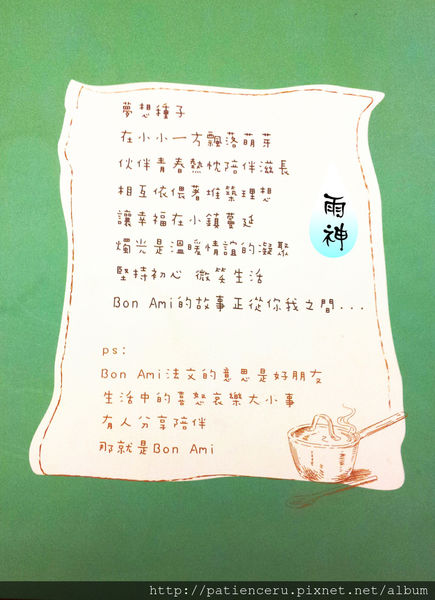 夢想種子
在小小一方飄落萌芽
伙伴青春熱忱陪伴滋長
相互依偎著堆築理想
讓幸福在小鎮蔓延
燭光是溫暖情誼的凝聚
堅持初心 微笑生活
Bon Ami的故事正從你我之間...
雨神
ps:
Bon Ami法文的意思是好朋友
生活中的喜怒哀樂大小事
有人分享陪伴
那就是Bon Ami
http://patienceru.pixnet.net/album